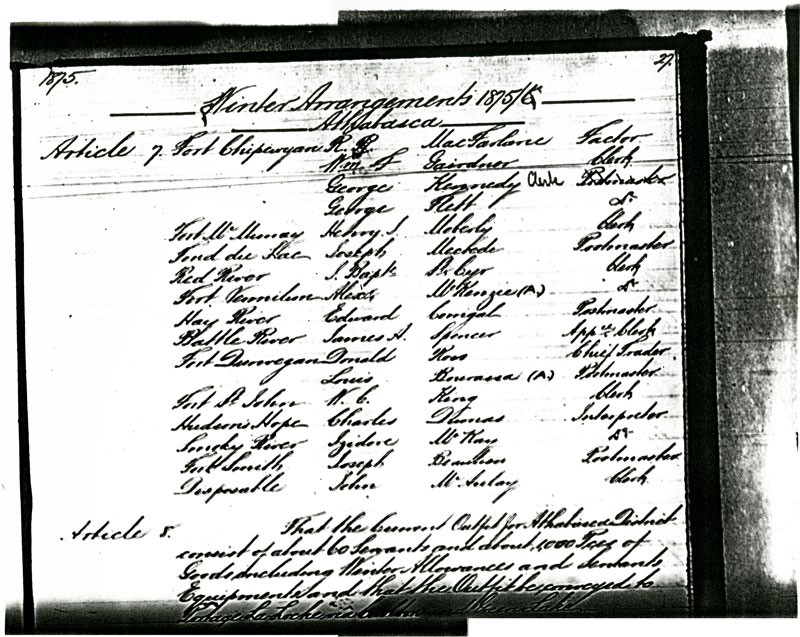 1875.
27
Winter Arrangements 1875/6
Athabasca
Article 7. Fort Chipewyan R. MacFarlane Factor
Wm. F Gairdner Clerk
George Kennedy Clerk Postmaster
George Flett Do
Fort Mc Murray Henry J. Moberly Clerk
Fond du Lac Joseph Mercredi Postmaster
Red River J. Bapte St. Cyr Clerk
Fort Vermilion Alexr. McKenzie (A) Do
Hay River Edward Postmaster
Battle River James H. Spencer Appce Clerk
Fort Dunvegan Donald Ross Chief Trader
Louis Bourassa (A) Postmaster
Fort St. John W. C. King Clerk
Hudsons Hope Charles Dumas Interpreter
Smoky River Isidore McKay Do
Fort Smith Joseph Beaulieu Postmaster
Disposable John McAulay Clerk
Article 8. That the Current Outfit for Athabasca District
consist of about 60 Servants and about Pces of
Goods including Winter Allowances and Servants
Equipments and that the Outfit be conveyed to
Portage La Loche